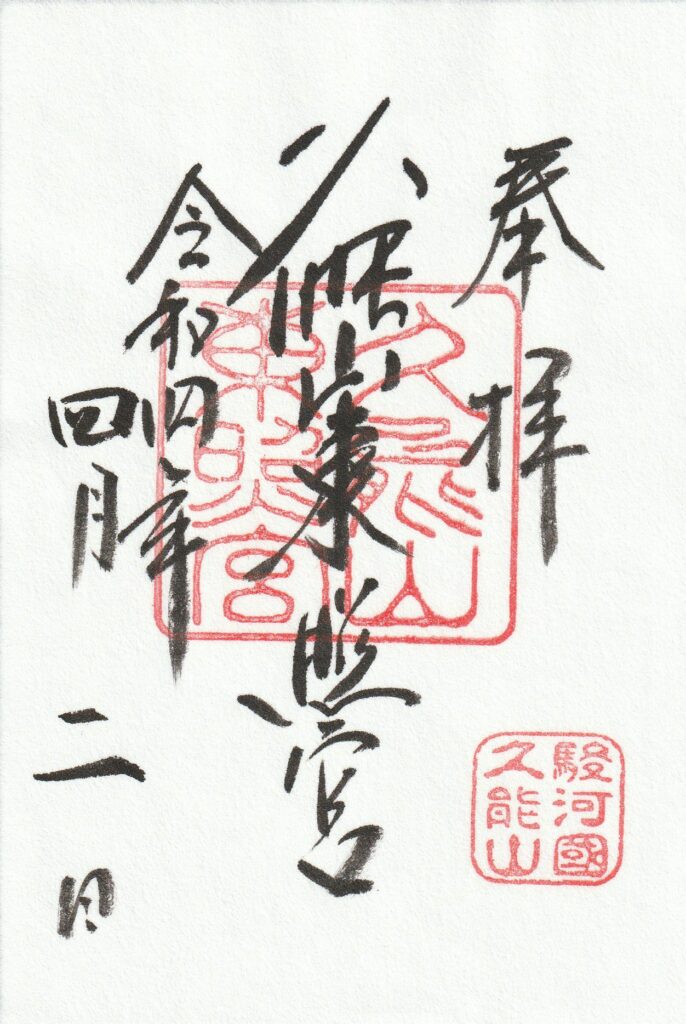 奉拝
久能山東照宮
令和四年
四月二日
久能山
東照宮
駿河國
久能山